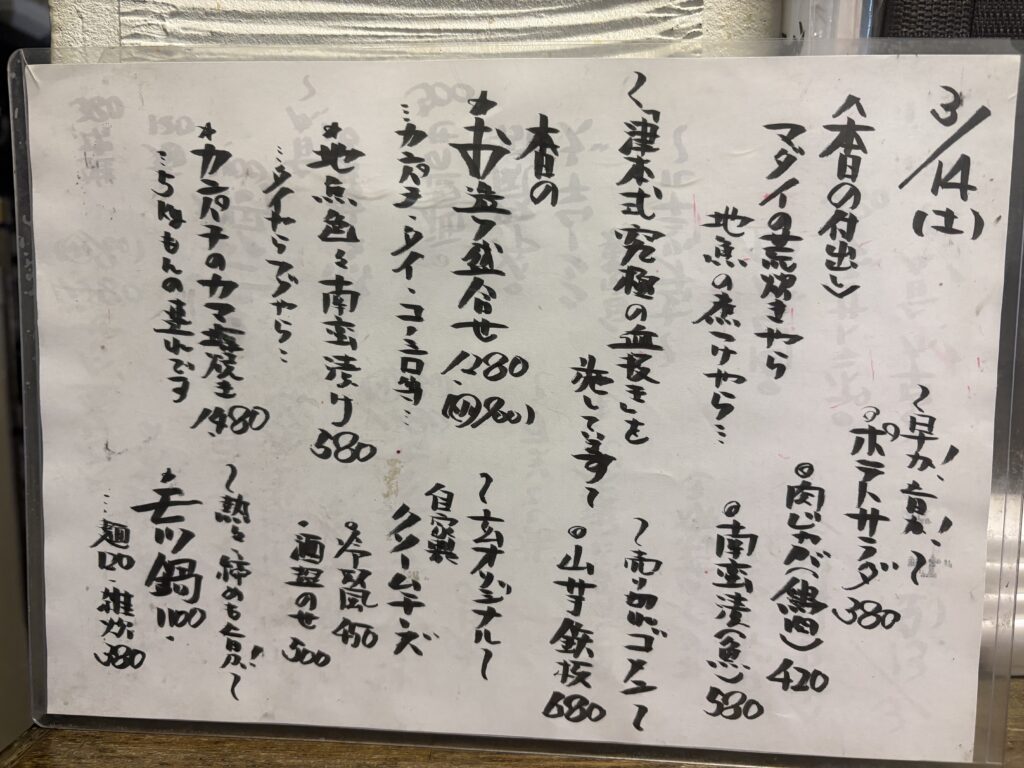 3/14(土)
〈本日の付出し〉
マダイの荒炊きやら
地魚の煮つけやら…
〜「津本式究極の血抜き」を
施しています〜
本日の
*お造り盛合せ 1280
・(ハーフ980)
…カンパチ・タイ・コチ 等…
*地魚色々南蛮漬け 580
…タイやらブやら…
*カンパチのカマ塩焼き 1480
…5kgもんの連れです
〜早か、旨か!!〜
◎ポテトサラダ 380
◎肉じゃが(鶏肉) 420
◎南蛮漬(魚) 580
〜売り切れゴメン〜
◎山芋鉄板 680
〜玄オリジナル〜
自家製
クリームチーズ
・冷製風 450
・酒盗のせ 500
〜熱々、締めも旨か!〜
*モツ鍋 1100
…麺120・雑炊380